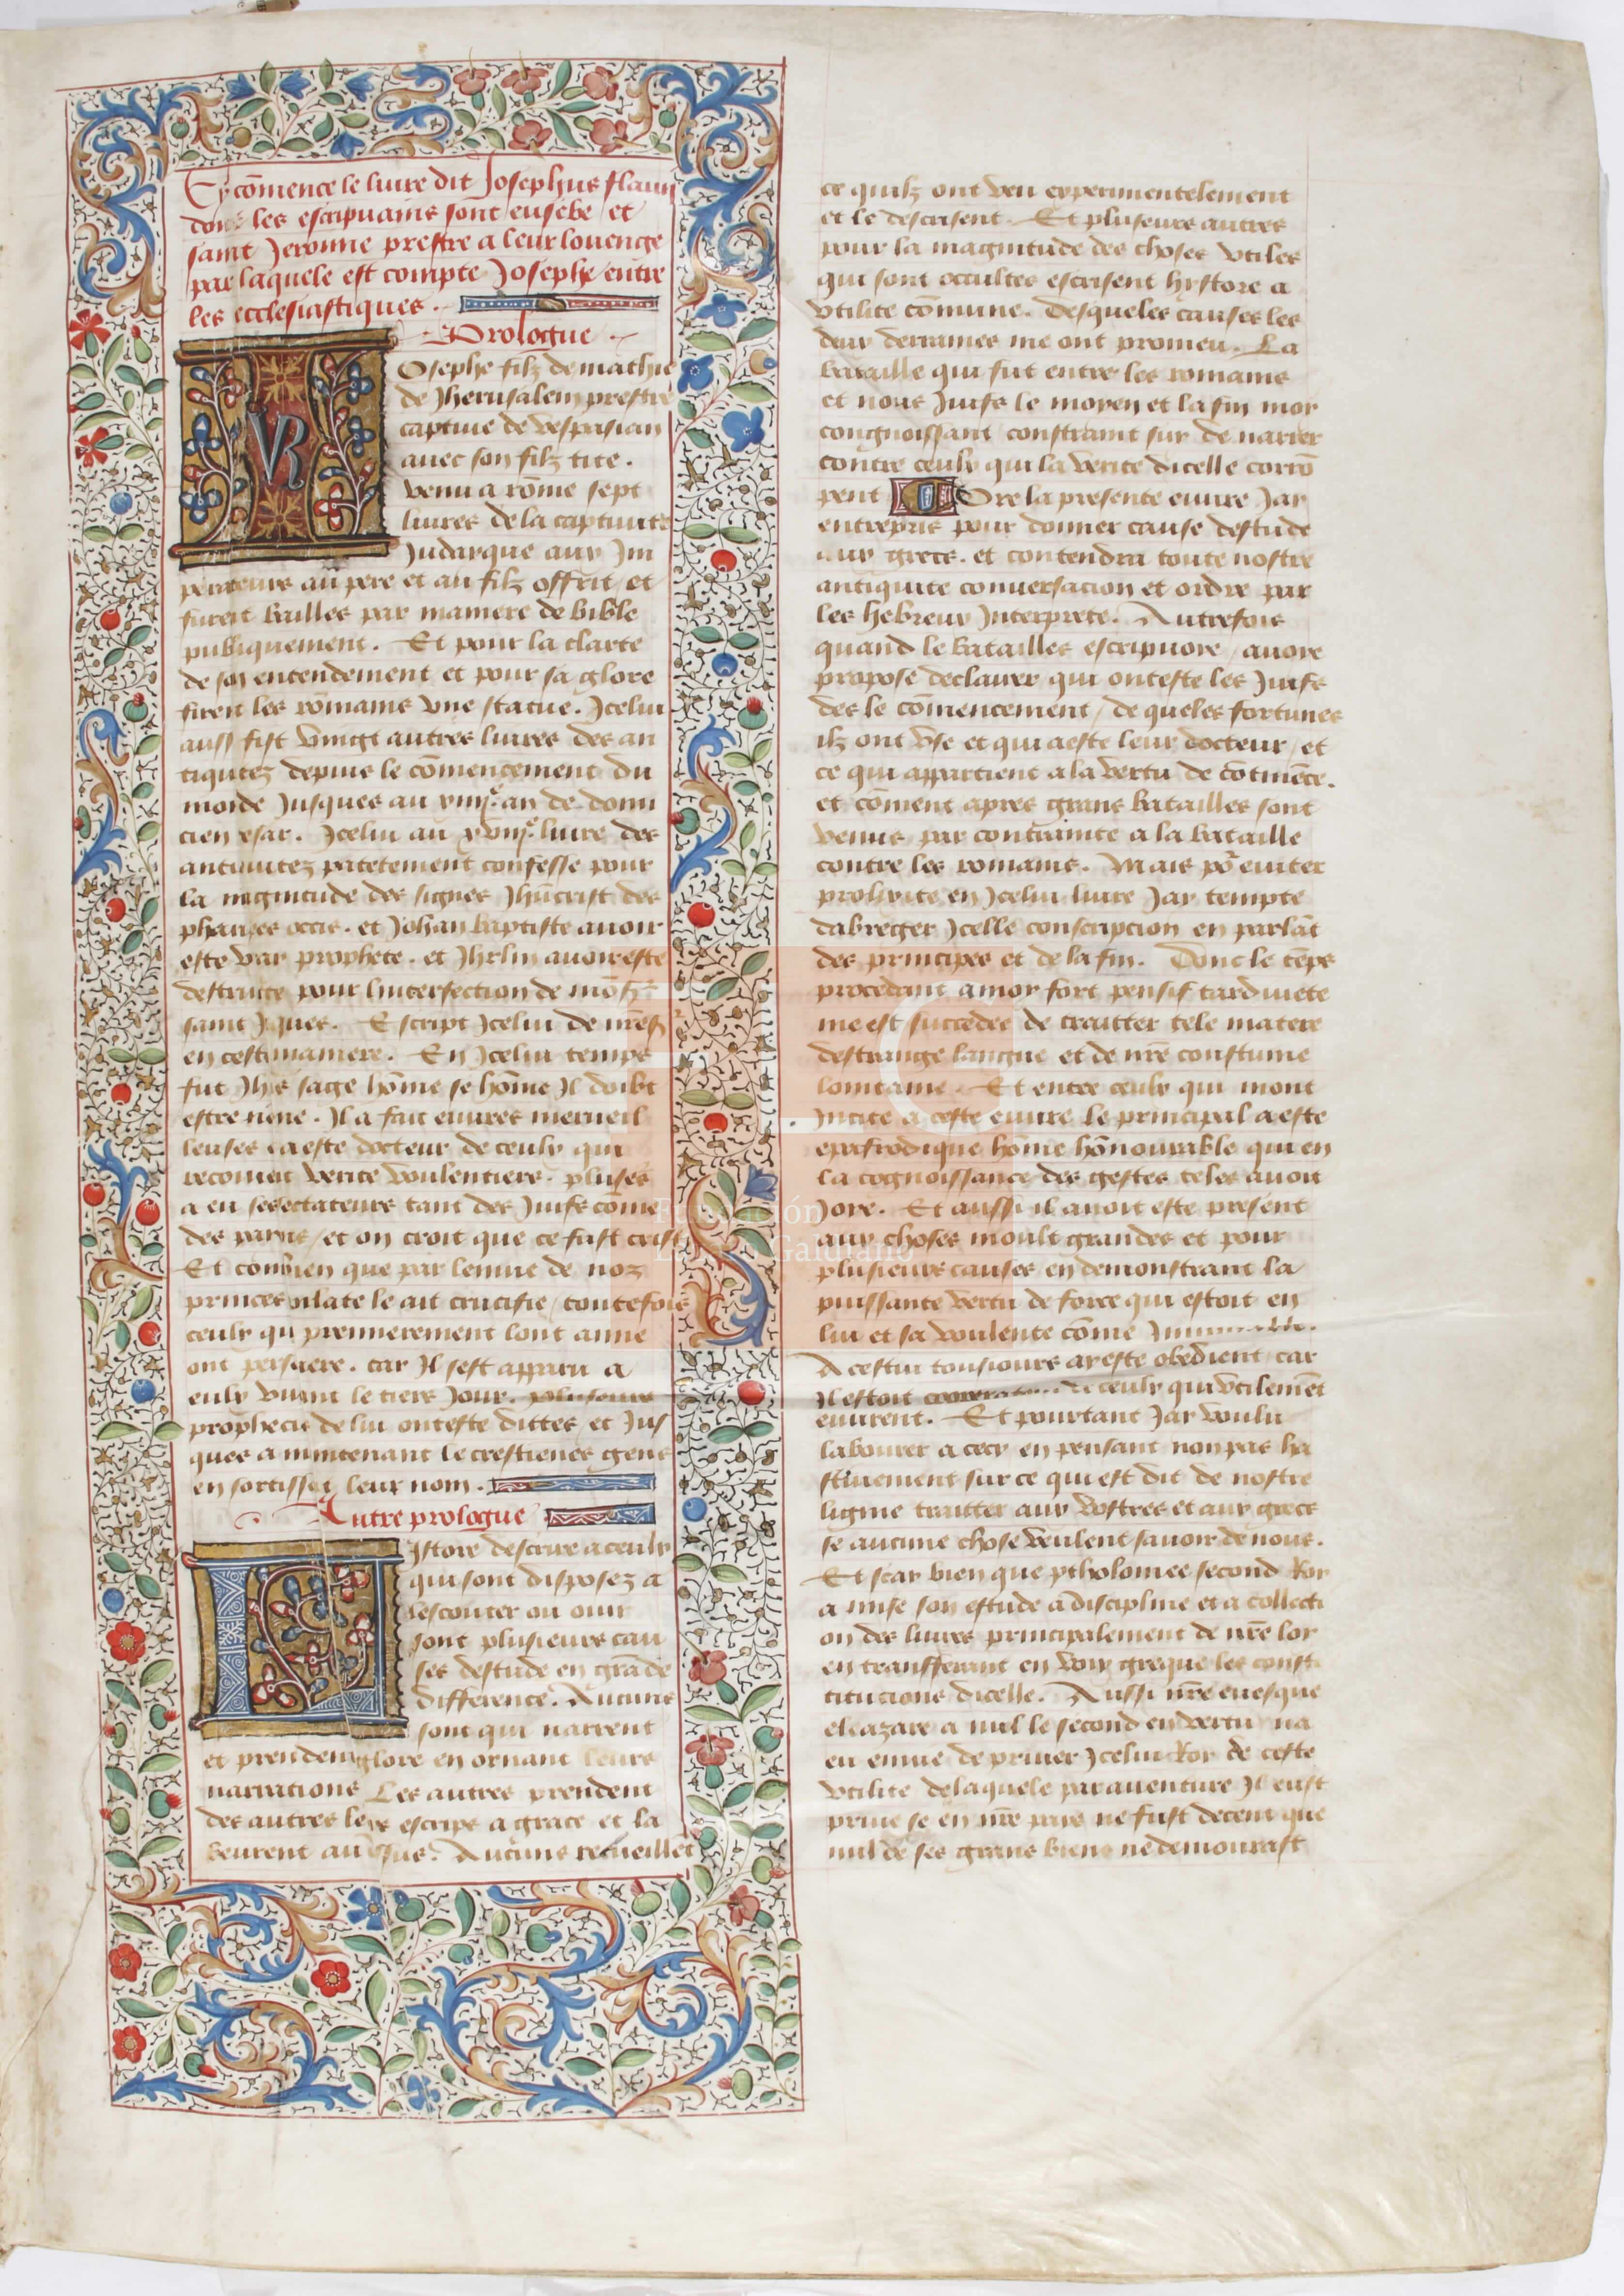 Cy cōmence le liure dit Josephus flaui
dont les escripuains sont eusebe et
saint Jeromme prestre a leur louenge
par laquele est compte Josephe entre
les ecclesiastiques.
Prologue
Osephe filz de mathie
de Jherusalem prestre
captiue de vespasian
auec son filz tite.
venu a rōme sept
liures de la captiuite
Judayque aux Im
perateurs au pere et au filz offrit et
furent bailles par maniere de bible
publiquement. Et pour la clarte
de son entendement et pour sa glore
firent les rōmains vne statue. Icelui
aussi fist vingt autres liures des an
tiquitez depuis le cōmencement du
monde Jusques au xiiij.e an de domi
cien cesar. Icelui au xviij.e liure des
antiuitez patetement confesse pour
la magnitude des signes Jhūcrist des
pharises occis. et Johan baptiste auoir
este vray prophete. et Jhrlm auoir este
destruite pour lintersection de mōs.
saint Jaques. Escript icelui de nrēs.
en ceste maniere. En Icelui temps
fut Jhūs sage hōme se hōme Il doibt
estre nōme. Il a fait euures merueil
leuses et a este docteur de ceulx qui
recoiuent verite voulentiers. pluseurs
a eu sesectateurs tant des Juifs cōme
des payens / et on croit que ce fust crist
Et combien que par lenuie de noz
princes pilate le ait crucifie / toutefois
ceulx qui premierement lont aime
ont perseuere. car Il sest apparu a
eulx viuant le tiers Jour. pluseurs
prophecies de lui ont este dittes et Jus
ques a maintenant le crestienes gens
en sortissent leur nom.
Autre prologue
Istore descrire a ceulx
qui sont disposez a
lescouter ou ouir
sont plusieurs cau
ses destude en grāde
difference. Aucuns
sont qui narrent
et prendent glore en ornant leurs
narrations Les autres prendent
des autres leurs escrips a grace et la
beurent au dessus. Aucuns recueillēt
ce quilz ont veu experimentelement
et le descrisent. Et pluseurs autres
pour la magnitude des choses vtiles
qui sont occultes escrisent hystore a
vtilite cōmune. desqueles causes les
deux derraines me ont promeu. La
bataille qui fut entre les romains
et nous Juifs le moyen et la fin moy
congnoissant constraint suy de narrer
contre ceulx qui la verite dicelle corrō
pent Ore la presente euure Jay
entrepris pour donner cause destude
aux grecs. et contendra toute nostre
antiquite conuersacion et ordre par
les hebreux Interprete. Autrefois
quand le batailles escripuoye / auoye
propose declairer qui ont este les Juifs
des le cōmencement / de queles fortunes
ilz ont vse et qui a este leur docteur / et
ce qui appartient a la vertu de cōtinēce.
et cōment apres grans batailles sont
venus par contrainte a la bataille
contre les romains. Mais po᷑ euiter
prolixite en Icelui liure Jay tempte
dabreger Icelle conscription en parlāt
des principes et de la fin. Donc le tēps
procedant a moy fort pensif tardiuete
me est succedee de traitter tele matere
destrange langue et de nrē coustume
lointaine. Et entre ceulx qui mont
Incite a ceste euure le principal a este
epafrodique hōme hōnourable qui en
la cognoissance des gestes teles auoit
Joye. Et aussi il auoit este present
aux choses moult grandes et pour
plusieurs causes en demonstrant la
puissante vertu de force qui estoit en
lui et sa voulente cōme
A cestui tousiours ay este obedient car
Il estoit de ceulx qui vtilemēt
euurent. Et pourtant Jay voulu
labourer a cecy en pensant non pas ha
stiuement sur ce qui est dit de nostre
lignie traitter aux vostres et aux grecs
se aucune chose veulent sauoir de nous.
Et scay bien que ptholomee second Roy
a mise son estude a discipline et a collecti
on des liures principalement de nrē loy
en transferant en voix greque les consti
titucions dicelle. Aussi nrē euesque
eleazare a nul le second en vertu na
eu enuie de priuer Icelui Roy de ceste
vtilite delaquele parauenture Il eust
priue se en nrē pays ne fust decent que
nul de ses grans biens ne demourast